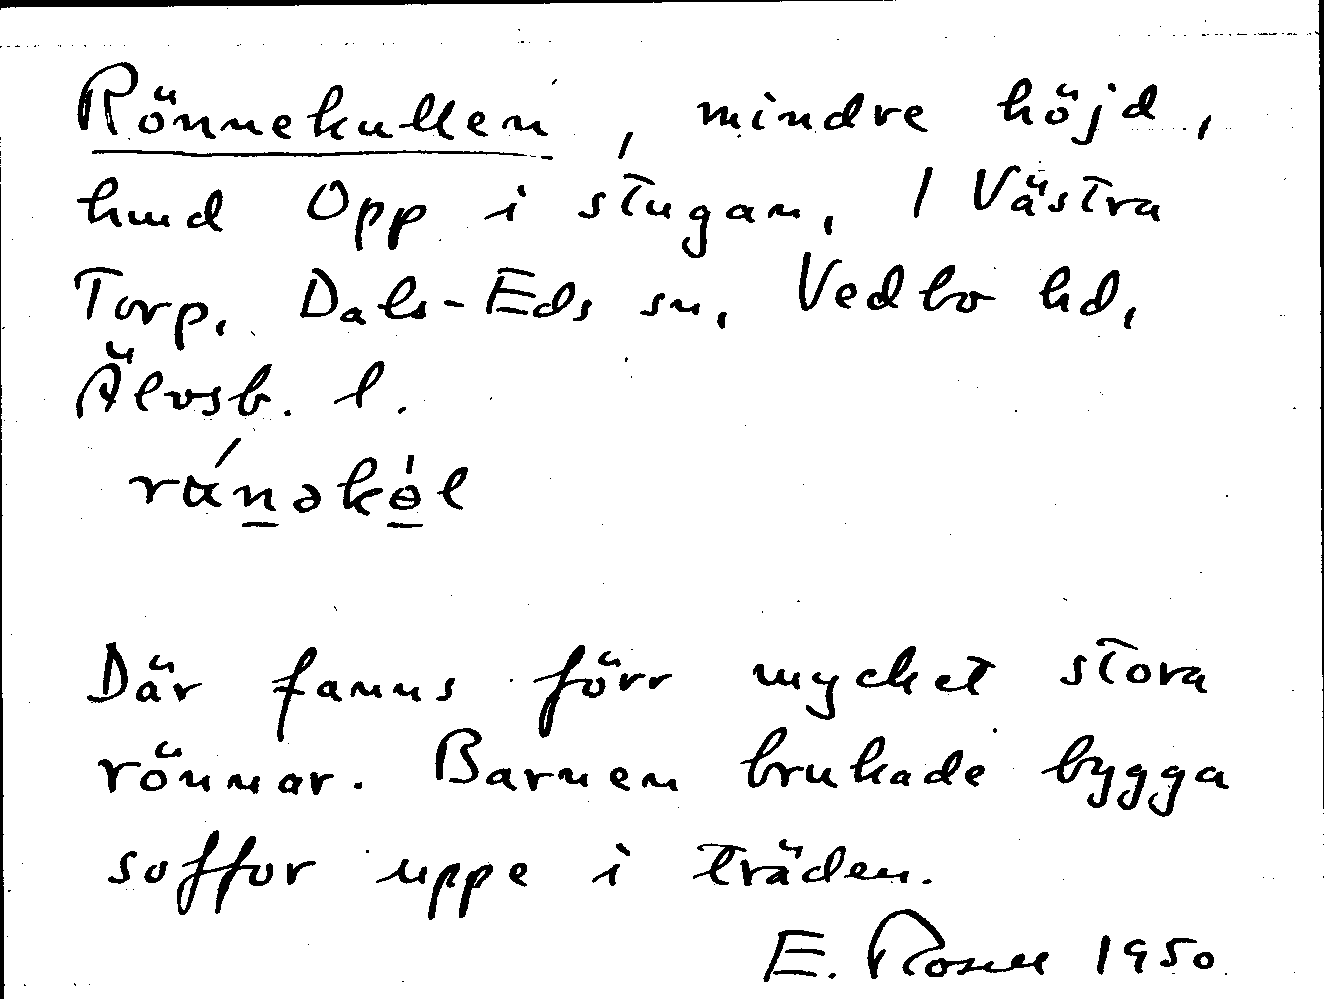 Rönnekullen, mindre höjd,
hmd Opp i stugan, 1 Västra
Torp, Dals-Eds sn, Vedbo hd,
Älvsb. l.
Där fanns förr mycket stora
rönnar. Barnen brukade bygga
soffor uppe i träden.
E. Rosell 1950